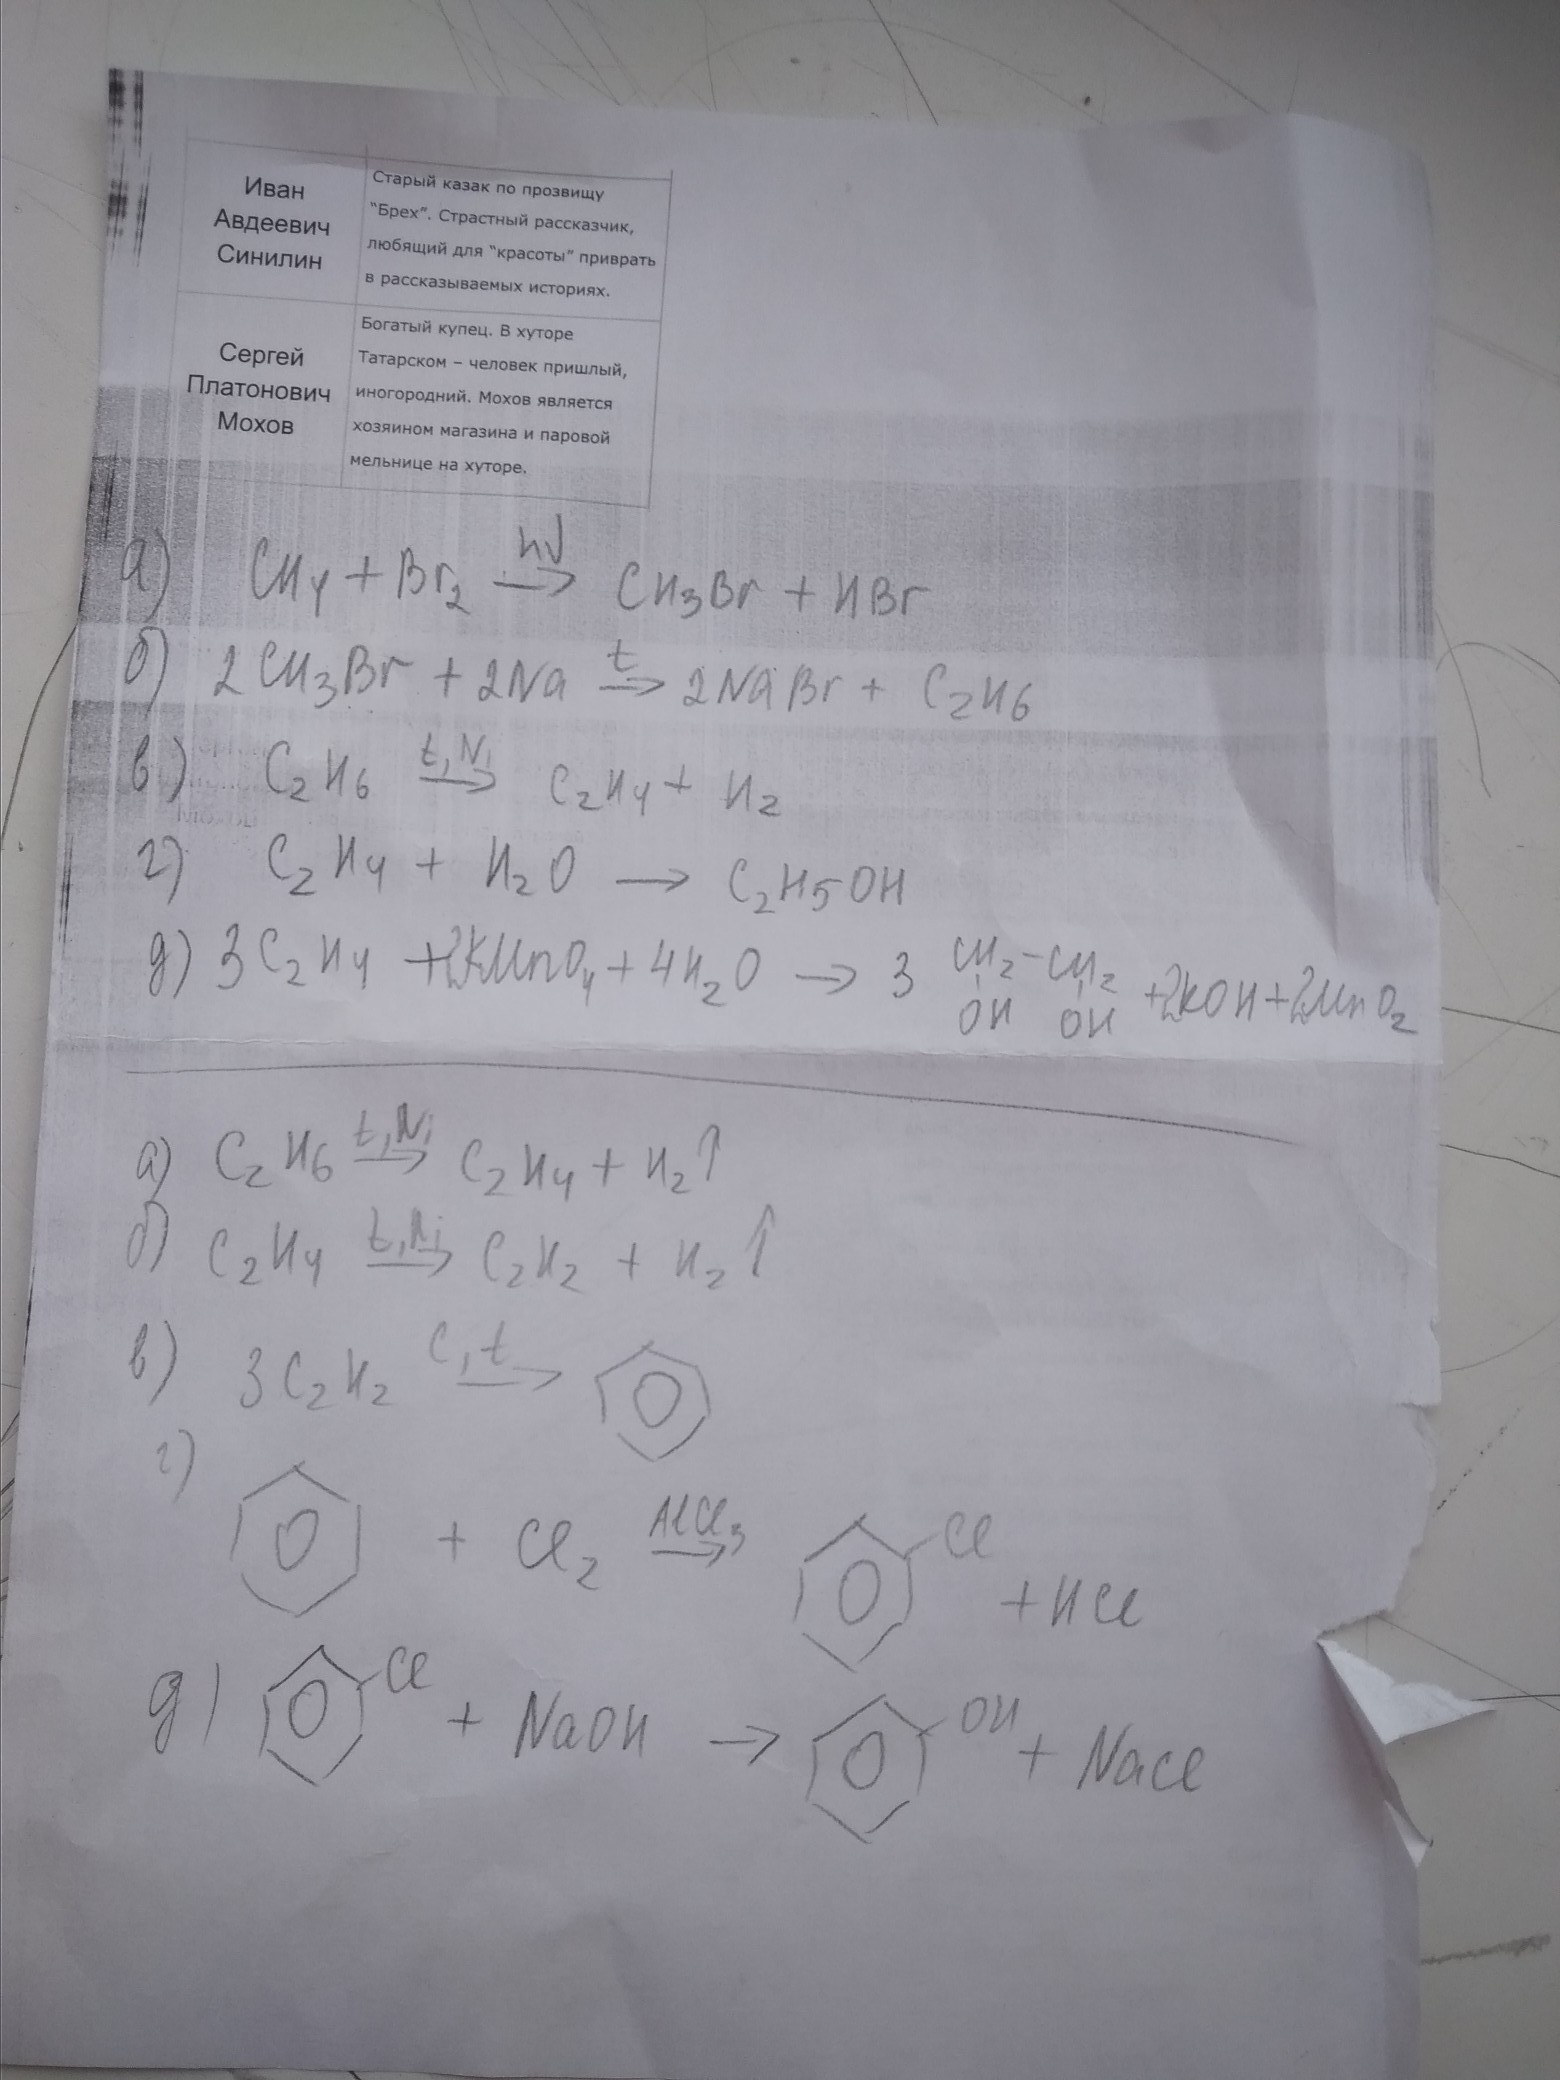 Иван
Авдеевич
Синилин
Старый казак по прозвищу
"Брех". Страстный рассказчик,
любящий для "красоты" приврать
в рассказываемых историях.
Сергей
Платонович
Мохов
Богатый купец. В хуторе
Татарском – человек пришлый,
иногородний. Мохов является
хозяином магазина и паровой
мельнице на хуторе.
а) CH4 + Br2 hν → CH3Br + HBr
б) 2CH3Br + 2Na t → 2NaBr + C2H6
в) C2H6 t, Ni → C2H4 + H2
г) C2H4 + H2O → C2H5OH
д) 3C2H4 + 2KMnO4 + 4H2O → 3 CH2-CH2 + 2KOH + 2MnO2
OH OH
а) C2H6 t, Ni → C2H4 + H2↑
б) C2H4 t, Ni → C2H2 + H2↑
в) 3C2H2 C, t →
г) + Cl2 AlCl3 → Cl + HCl
д) Cl + NaOH → OH + NaCl